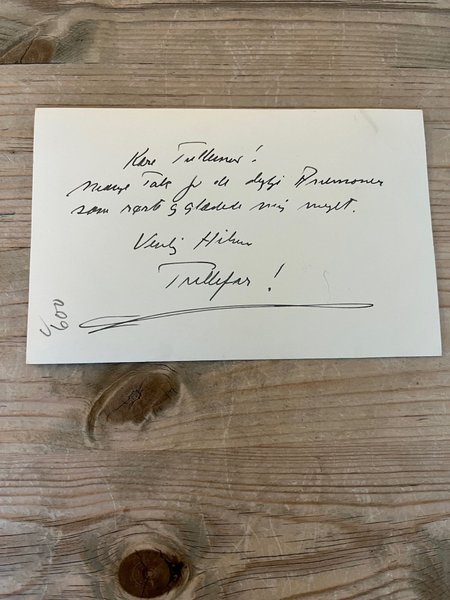 Kære Trillemor!
Mange Tak for de dejlige Anemoner
som rørte & glædede mig meget.
Venlig Hilsen
Trillefar!
600